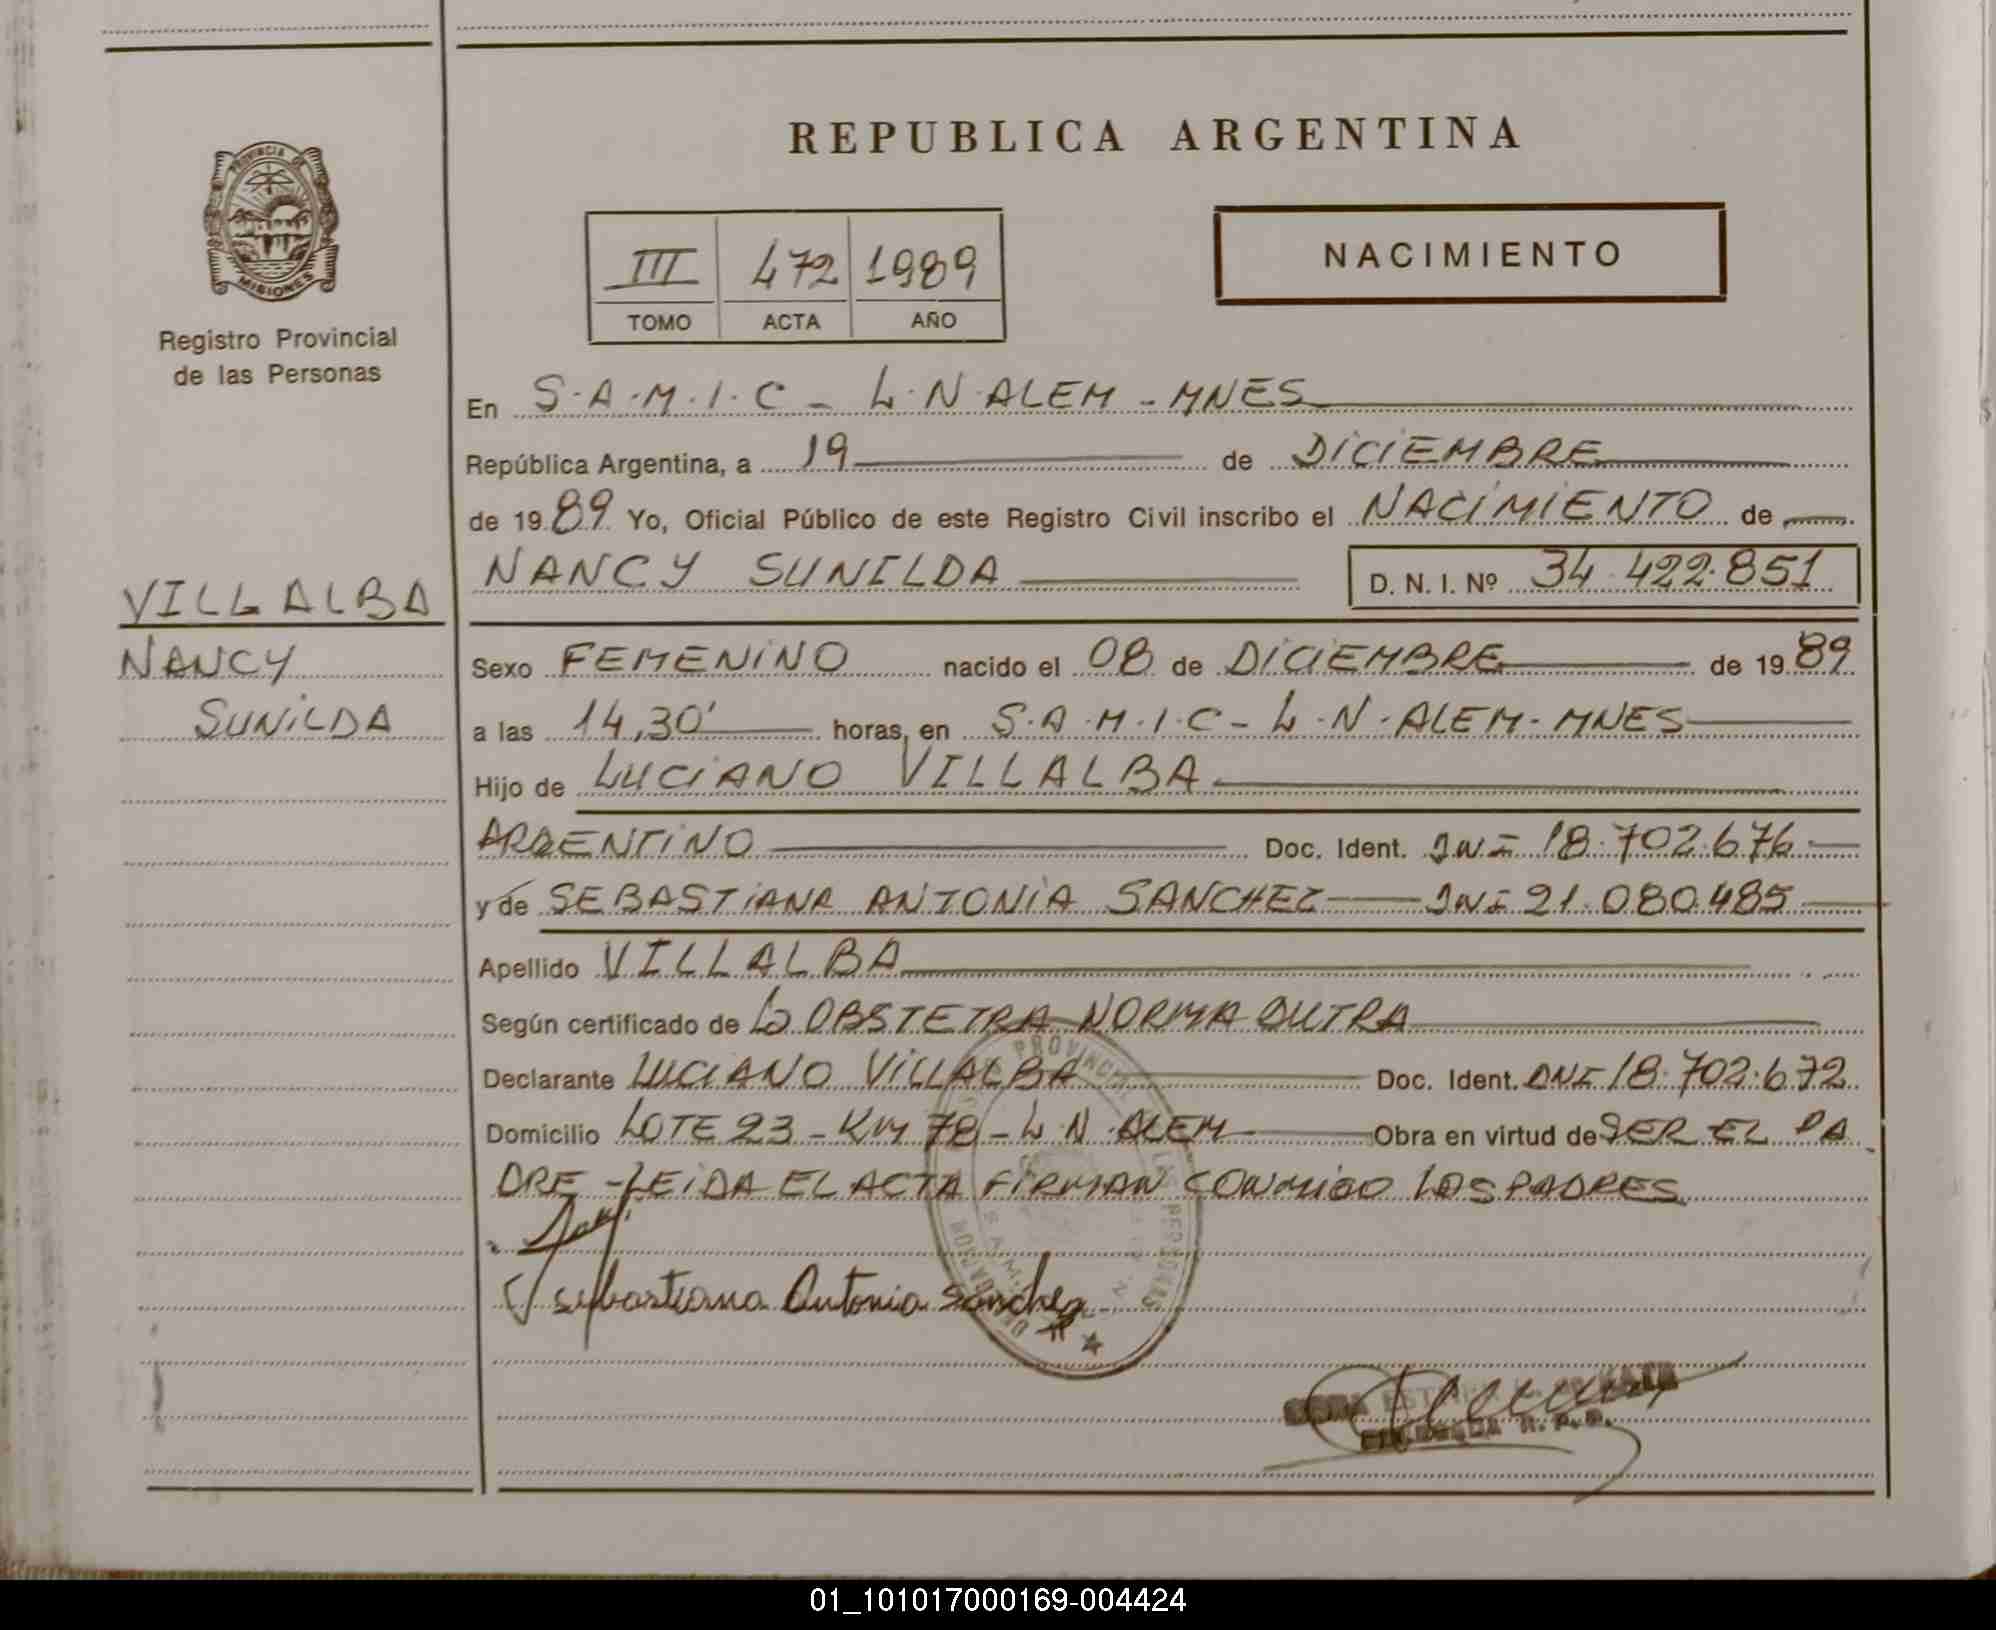 REPUBLICA ARGENTINA
PROVINCIA DE
MISIONES
Registro Provincial
de las Personas
III 472 1989
TOMO ACTA AÑO
NACIMIENTO
En S.A.M.I.C - L.N.ALEM - MNES
República Argentina, a 19 de DICIEMBRE
de 1989 Yo, Oficial Público de este Registro Civil inscribo el NACIMIENTO de
NANCY SUNILDA D. N. I. Nº 34.422.851
VILLALBA
NANCY
SUNILDA
Sexo FEMENINO nacido el 08 de DICIEMBRE de 1989
a las 14,30' horas, en S.A.M.I.C - L.N.ALEM - MNES
Hijo de LUCIANO VILLALBA
ARGENTINO Doc. Ident. DNI 18.702.676
y de SEBASTIANA ANTONIA SANCHEZ DNI 21.080.485
Apellido VILLALBA
Según certificado de La OBSTETRA NORMA DUTRA
Declarante LUCIANO VILLALBA Doc. Ident. DNI 18.702.672
Domicilio LOTE 23 - KM 78 - L.N.ALEM Obra en virtud de SER EL PA
DRE - LEIDA EL ACTA FIRMAN CONMIGO LOS PADRES
Sebastiana Antonia Sanchez
R. P. P.
01_101017000169-004424